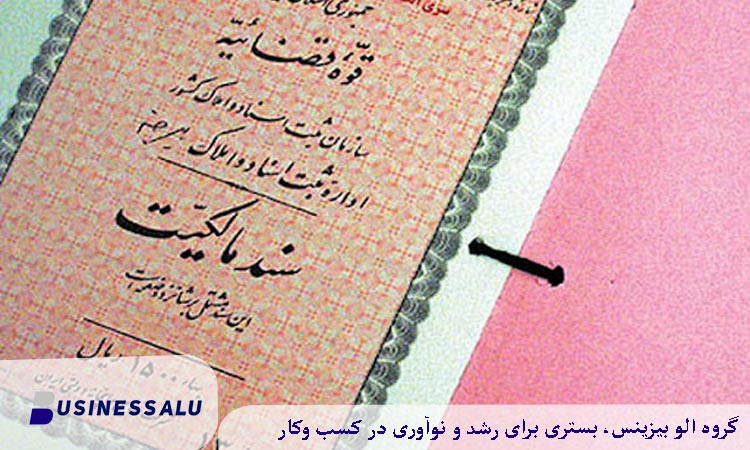 جمهوری اسلامی
قوّه قضائیه
سازمان ثبت اسناد و املاک کشور
اداره ثبت اسناد و املاک
سند مالکیّت
این سند مشتمل بر شانزده صفحه است
بهاء ۱۵۰۰ ریال
BUSINESSALU
گروه الو بیزینس، بستری برای رشد و نوآوری در کسب وکار